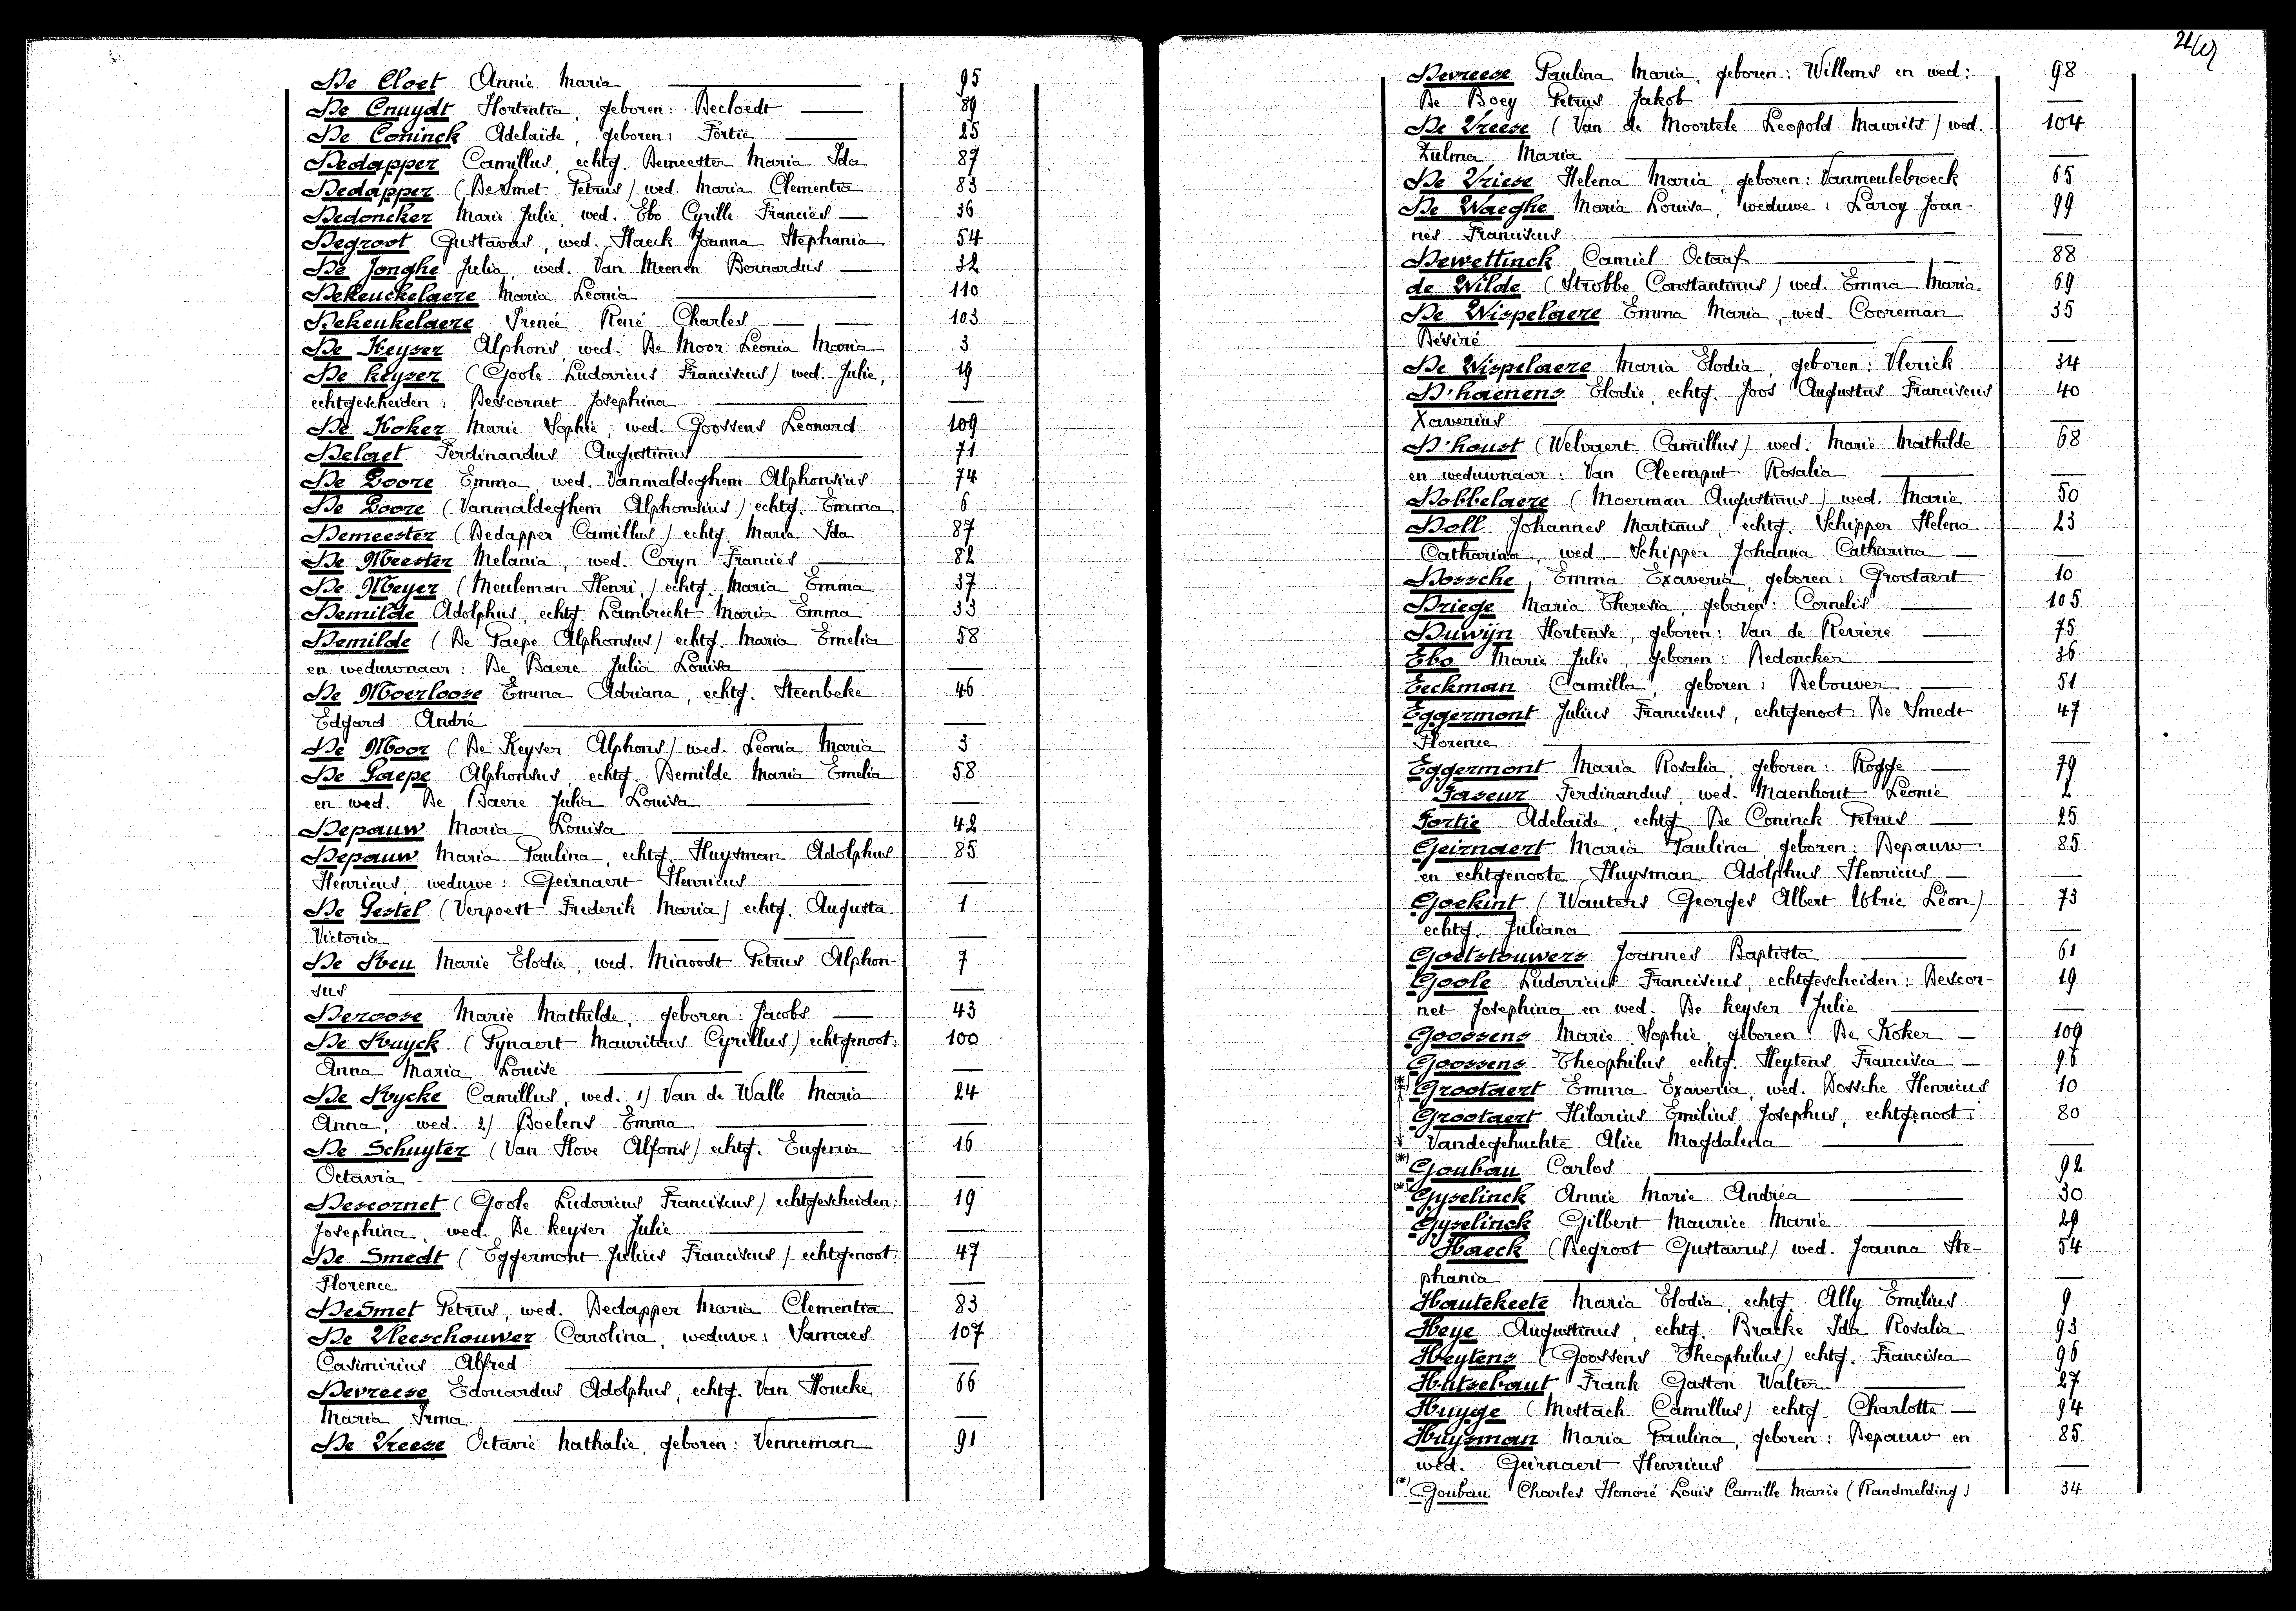 De Cloet Annie Maria 95
De Cnuydt Hortentia, geboren: Decloedt 89
De Coninck Adelaide, geboren: Fortie 25
Dedapper Camillus, echtg. Demeester Maria Ida 87
Dedapper (DeSmet Petrus) wed. Maria Clementia 83
Dedoncker Marie Julie, wed. Ebo Cyrille Francies 36
Degroot Gustavus, wed. Haeck Joanna Stephania 54
De Jonghe Julia, wed. Van Meenen Bernardus 32
Dekeuckelaere Maria Leonia 110
Dekeukelaere Irenée René Charles 103
De Keyser Alphons, wed. De Moor Leonia Maria 3
De keyser (Goole Ludovicus Franciscus) wed. Julie, 19
echtgescheiden: Descornet Josephina
De Koker Marie Sophie, wed. Goossens Leonard 109
Delaet Ferdinandus Augustinus 71
De Loore Emma, wed. Vanmaldeghem Alphonsius 74
De Loore (Vanmaldeghem Alphonsius) echtg. Emma 6
Demeester (Dedapper Camillus) echtg. Maria Ida 87
De Meester Melania, wed. Coryn Francies 82
De Meyer (Meuleman Henri) echtg. Maria Emma 37
Demilde Adolphus, echtg. Lambrecht Maria Emma 33
Demilde (De Paepe Alphonsus) echtg. Maria Emelia 58
en weduwnaar: De Baere Julia Louisa
De Moerloose Emma Adriana, echtg. Steenbeke 46
Edgard André
De Moor (De Keyser Alphons) wed. Leonia Maria 3
De Paepe Alphonsus, echtg. Demilde Maria Emelia 58
en wed. De Baere Julia Louisa
Depauw Maria Louisa 42
Depauw Maria Paulina, echtg. Huysman Adolphus 85
Henricus, weduwe: Geirnaert Henricus
De Pestel (Verpoest Frederik Maria) echtg. Augusta 1
Victoria
De Reu Marie Elodie, wed. Minoodt Petrus Alphon- 7
sus
Deroose Marie Mathilde, geboren: Jacobs 43
De Ruyck (Fynaert Mauritius Cyrillus) echtgenoot: 100
Anna Maria Louise
De Rycke Camillus, wed. 1) Van de Walle Maria 24
Anna, wed. 2) Boelens Emma
De Schuyter (Van Hove Alfons) echtg. Eugenia 16
Octavia
Descornet (Goole Ludovicus Franciscus) echtgescheiden: 19
Josephina, wed. De keyser Julie
De Smedt (Eggermont Julius Franciscus) echtgenoot: 47
Florence
DeSmet Petrus, wed. Dedapper Maria Clementia 83
De Vleeschouwer Carolina, weduwe: Varnaes 107
Casimirius Alfred
Devreese Edouardus Adolphus, echtg. Van Houcke 66
Maria Irma
De Vreese Octavie Nathalie, geboren: Venneman 91
Devreese Paulina Maria, geboren: Willems en wed: 98
De Boey Petrus Jakob
De Vreese (Van de Moortele Leopold Maurits) wed. 104
Zulma Maria
De Vriese Helena Maria, geboren: Vanmeulebroeck 65
De Waeghe Maria Louisa, weduwe: Laroy Joan- 99
nes Franciscus
Dewettinck Camiel Octaaf 88
de Wilde (Strobbe Constantinus) wed. Emma Maria 69
De Wispelaere Emma Maria, wed. Cooreman 35
Désiré
De Wispelaere Maria Elodia, geboren: Vlerick 34
D'haenens Elodie, echtg. Joos Augustus Franciscus 40
Xaverius
D'houst (Welvaert Camillus) wed: Marie Mathilde 68
en weduwnaar: Van Cleemput Rosalia
Dobbelaere (Moerman Augustinus) wed. Marie 50
Doll Johannes Martinus, echtg. Schipper Helena 23
Catharina, wed. Schipper Johanna Catharina
Dossche, Emma Exaveria, geboren: Grootaert 10
Driege Maria Theresia, geboren: Cornelis 105
Duwijn Hortense, geboren: Van de Reviere 75
Ebo Marie Julie, geboren: Dedoncker 36
Eeckman Camilla, geboren: Debouver 51
Eggermont Julius Franciscus, echtgenoot: De Smedt 47
Florence
Eggermont Maria Rosalia, geboren: Rogge 79
Faseur Ferdinandus, wed. Maenhout Leonie 2
Fortie Adelaide, echtg. De Coninck Petrus 25
Geirnaert Maria Paulina geboren: Depauw 85
en echtgenoote Huysman Adolphus Henricus
Goekint (Wauters Georges Albert Ulric Léon) 73
echtg. Juliana
Goetstouwers Joannes Baptista 61
Goole Ludovicus Franciscus, echtgescheiden: Descor- 19
net Josephina en wed. De keyser Julie
Goossens Marie Sophie, geboren: De Koker 109
Goossens Theophilus echtg. Heytens Francisca 96
Grootaert Emma Exaveria, wed. Dossche Henricus 10
Grootaert Hilarius Emilius Josephus, echtgenoot: 80
Vandegehuchte Alice Magdalena
Goubau Carlos 92
Gyselinck Annie Marie Andréa 30
Gyselinck Gilbert Maurice Marie 29
Haeck (Degroot Gustavus) wed. Joanna Ste- 54
phania
Hautekeete Maria Elodia, echtg. Ally Emilius 9
Heye Augustinus, echtg. Bracke Ida Rosalia 93
Heytens (Goossens Theophilus) echtg. Francisca 96
Hutsebaut Frank Gaston Walter 27
Huyge (Mestach Camillus) echtg. Charlotte 94
Huysman Maria Paulina, geboren: Depauw en 85
wed. Geirnaert Henricus
(*) Goubau Charles Honoré Louis Camille Marie (Randmelding) 34